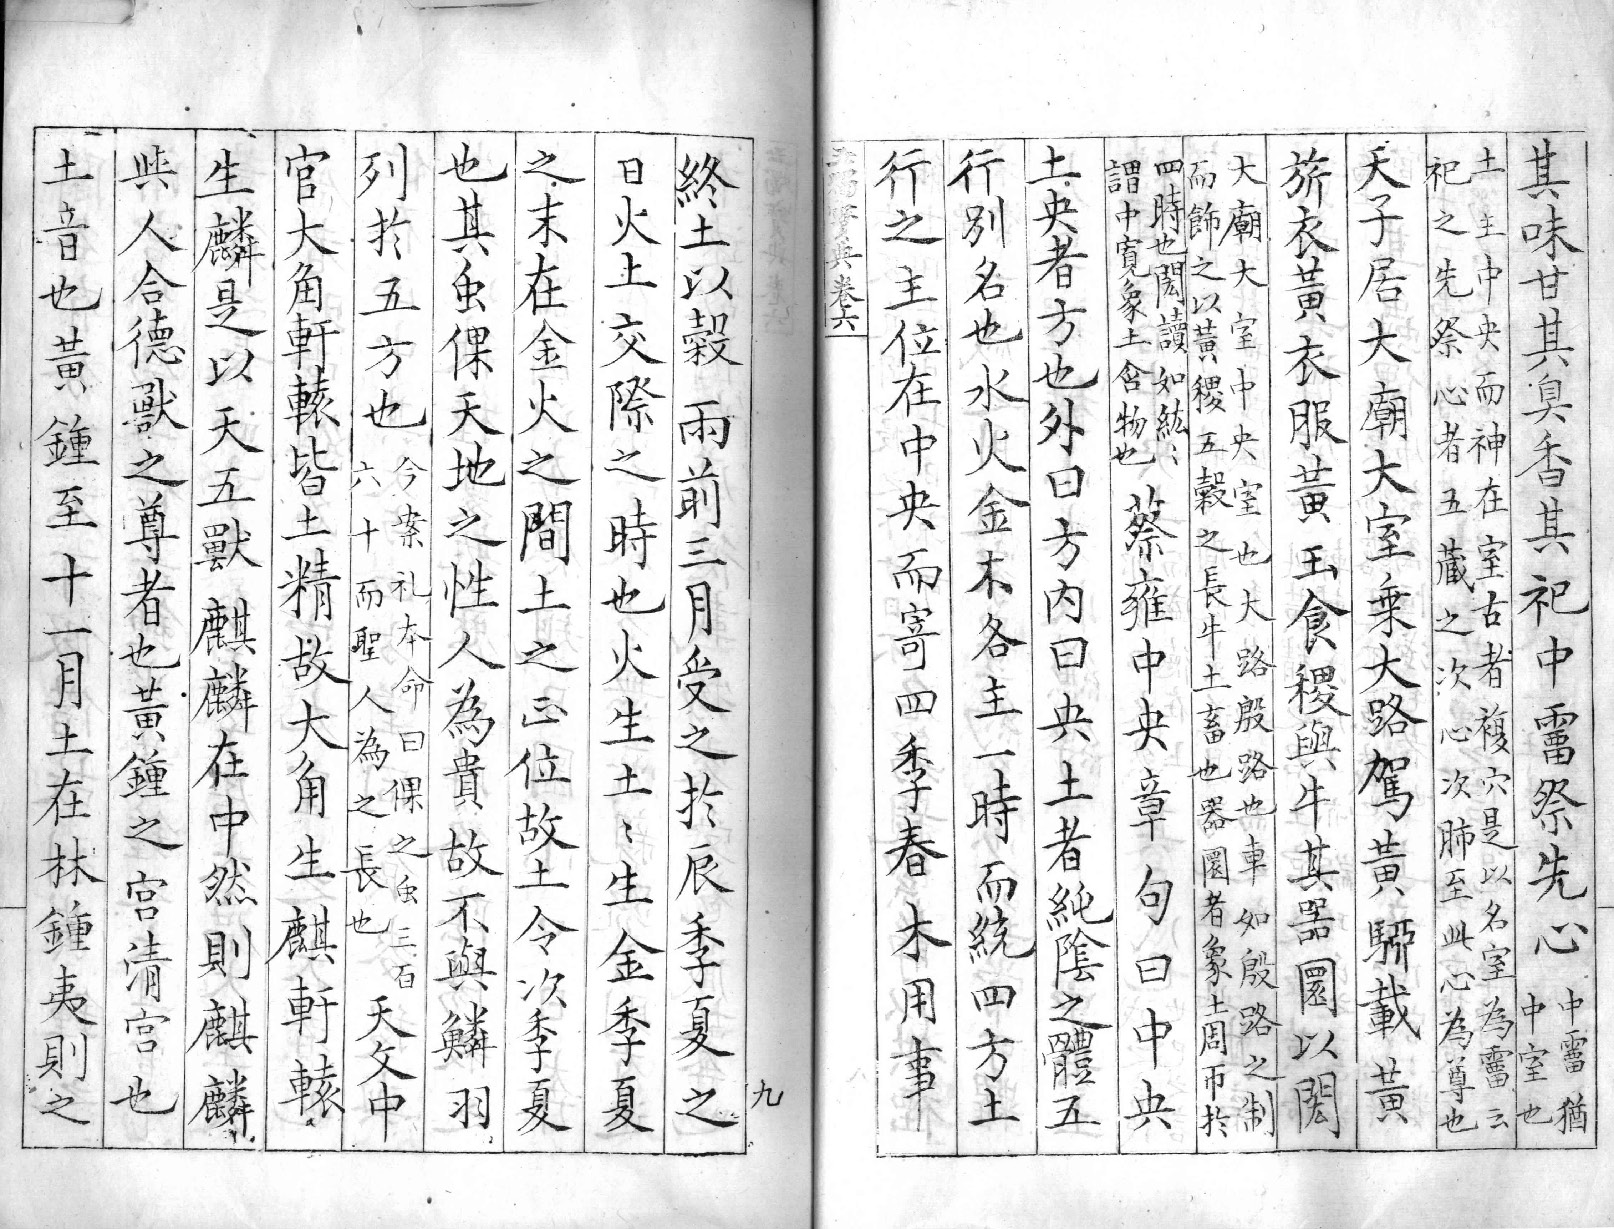 其味甘其臭香其祀中霤祭先心
中霤猶
中室也
土主中央而神在室古者複穴是以名室為霤云
祀之先祭心者五蔵之次心次肺至此心為尊也
天子居大廟大室乗大路駕黄騮載黄
旂衣黄衣服黄玉食稷與牛其器圜以閎
大廟大室中央室也大路殷路也車如殷路之制
而飾之以黄稷五穀之長牛土畜也器圜者象土周帀於
四時也閎讀如紘〻
謂中寛象土含物也
蔡雍中央章句曰中央
土央者方也外曰方内曰央土者純陰之體五
行別名也水火金木各主一時而統四方土
行之主位在中央而寄四季春木用事
九
終土以穀雨前三月受之於辰季夏之
日火土交際之時也火生土〻生金季夏
之末在金火之間土之正位故土令次季夏
也其虫倮天地之性人為貴故不與鱗羽
列於五方也
今案礼本命曰倮之虫三百
六十而聖人為之長也
天文中
官大角軒轅皆土精故大角生麒軒轅
生麟是以天五獸麒麟在中然則麒麟
與人合德獸之尊者也黄鍾之宮清宮也
土音也黄鍾至十一月土在林鍾夷則之